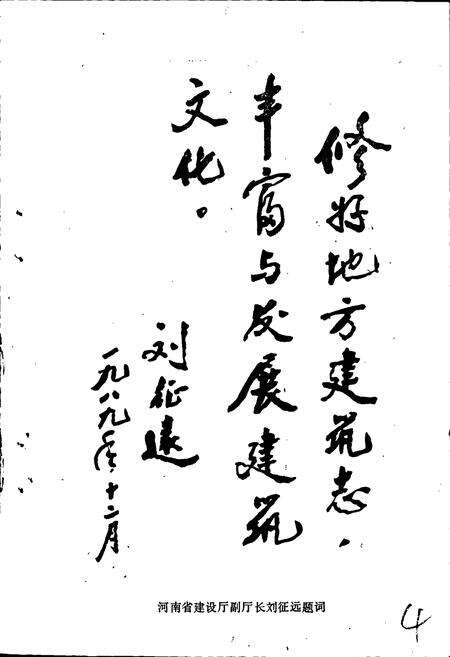 修好地方建筑志.
丰富与发展建筑
文化。
刘征远
一九八九年十二月
河南省建设厅副厅长刘征远题词
4